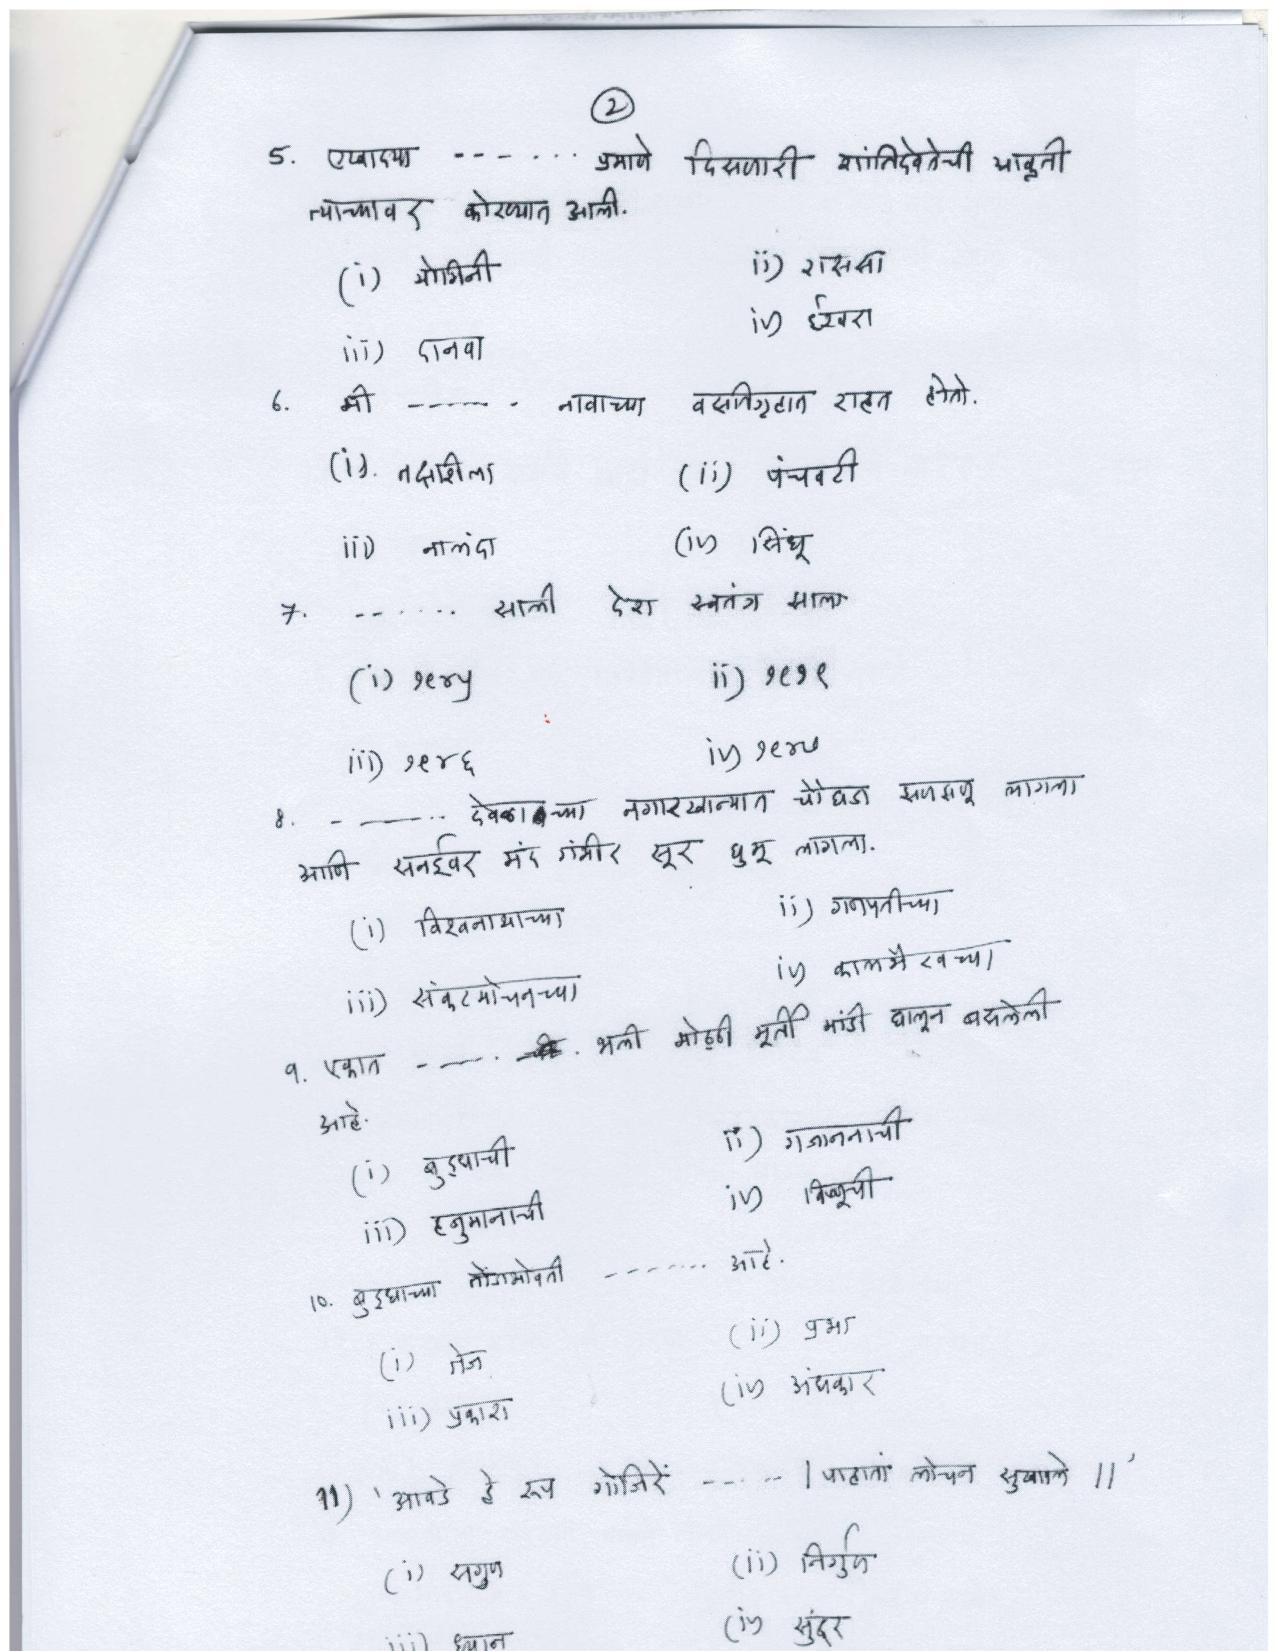 2
5. एखाद्या ------- प्रमाणे दिसणारी शांतिदेवतेची आकृती
त्याच्यावर कोरण्यात आली.
(i) योगिनी ii) राक्षसी
iii) दानवा iv) ईश्वरा
6. मी ------ नावाच्या वसतिगृहात राहत होतो.
(i). तक्षशिला (ii) पंचवटी
iii) नालंदा (iv) सिंधू
7. ------- साली देश स्वतंत्र झाला
(i) १९४५ ii) १९१९
iii) १९४६ iv) १९४७
8. ------- देवळाच्या नगारखान्यात चौघडा झणझणू लागला
आणि सनईवर मंद गंभीर सूर घुमू लागला.
(i) विश्वनाथाच्या ii) गणपतीच्या
iii) संकटमोचनच्या iv) कालभैरवच्या
9. एकात ------- भली मोठ्ठी मूर्ती मांडी घालून बसलेली
आहे.
(i) बुद्धाची ii) गजाननाची
iii) हनुमानाची iv) विष्णूची
10. बुद्धाच्या तोंडाभोवती -------- आहे.
(i) तेज (ii) प्रभा
iii) प्रकाश (iv) अंधकार
11) 'आवडे हे रूप गोजिरें ------ । पाहातां लोचन सुखावले ॥'
(i) सगुण (ii) निर्गुण
iii) ध्यान (iv) सुंदर